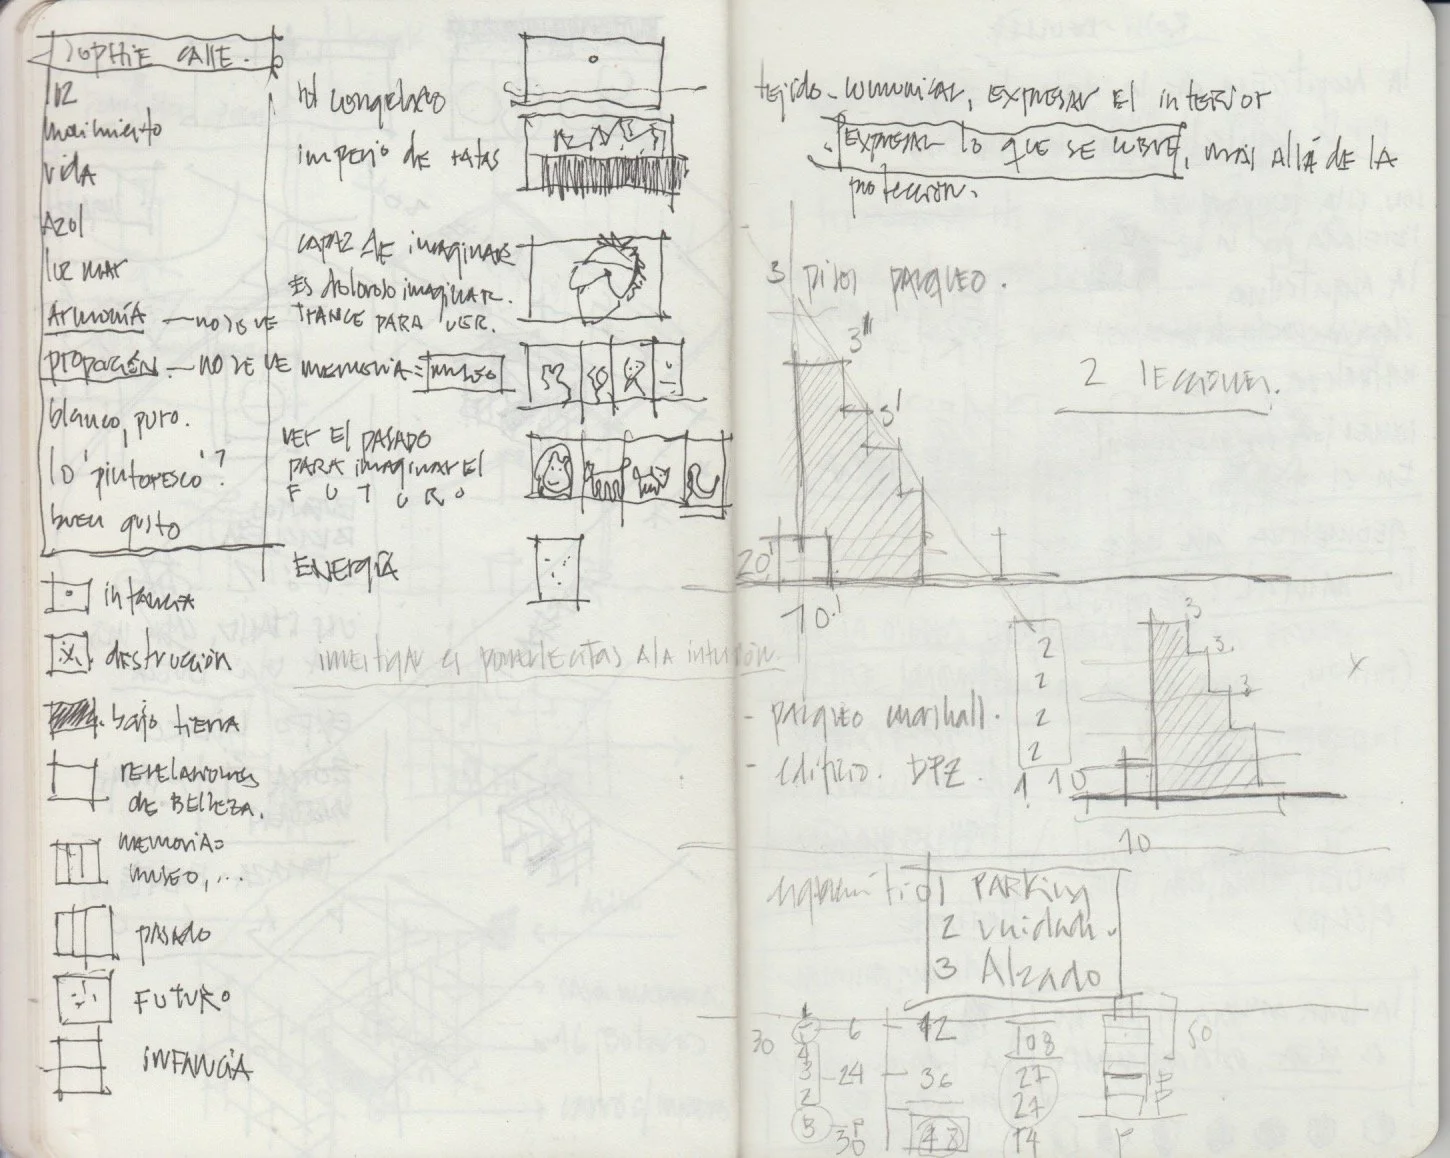 SOPHIE CALLE.
luz
movimiento
vida
Azul
luz mar
Armonía — no se ve
proporción — no se ve
blanco, puro.
lo 'pintoresco'?
buen gusto
infancia
destrucción
bajo tierra
revelaciones
de BELLEZA.
memoria=
museo, ...
pasado
FUTURO
INFANCIA
sol congelado
imperio de ratas
capaz de imaginar
Es doloroso imaginar.
TRANCE PARA VER.
memoria = museo
VER EL PASADO
PARA imaginar El
FUTURO
ENERGÍA
a la intuición
tejido - comunicar, EXPRESAR El interior
EXPRESAR lo que se cubre, más allá de la
protección.
3 pisos parqueo.
3"
3'
20'
10'
2 lecciones.
- parqueo marshall.
- Edificio. DPZ.
2
2
2
2
1 10
3
3
3
10
1 PARKing
2 Unidad
3 Alzado
30
6 - 12
108
50
4
3
2
24 - 36
27
27
3
30
48
14